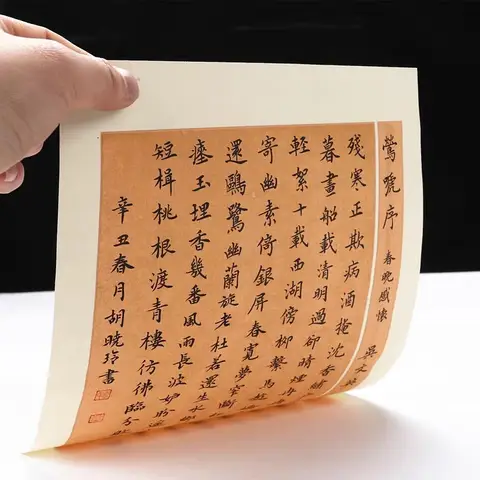 鶯嗁序 春晚感懷 吳文英
殘寒正欺病酒掩沈香繡
暮畫船載清明過卻晴煙冉
輕絮十載西湖傍柳繫馬趁
寄幽素倚銀屏春寬夢窄斷
還鷗鷺幽蘭旋老杜若還生水鄉
瘞玉埋香幾番風雨長波妒盼遙
短楫桃根渡青樓彷彿臨分敗
辛丑春月胡曉玲書